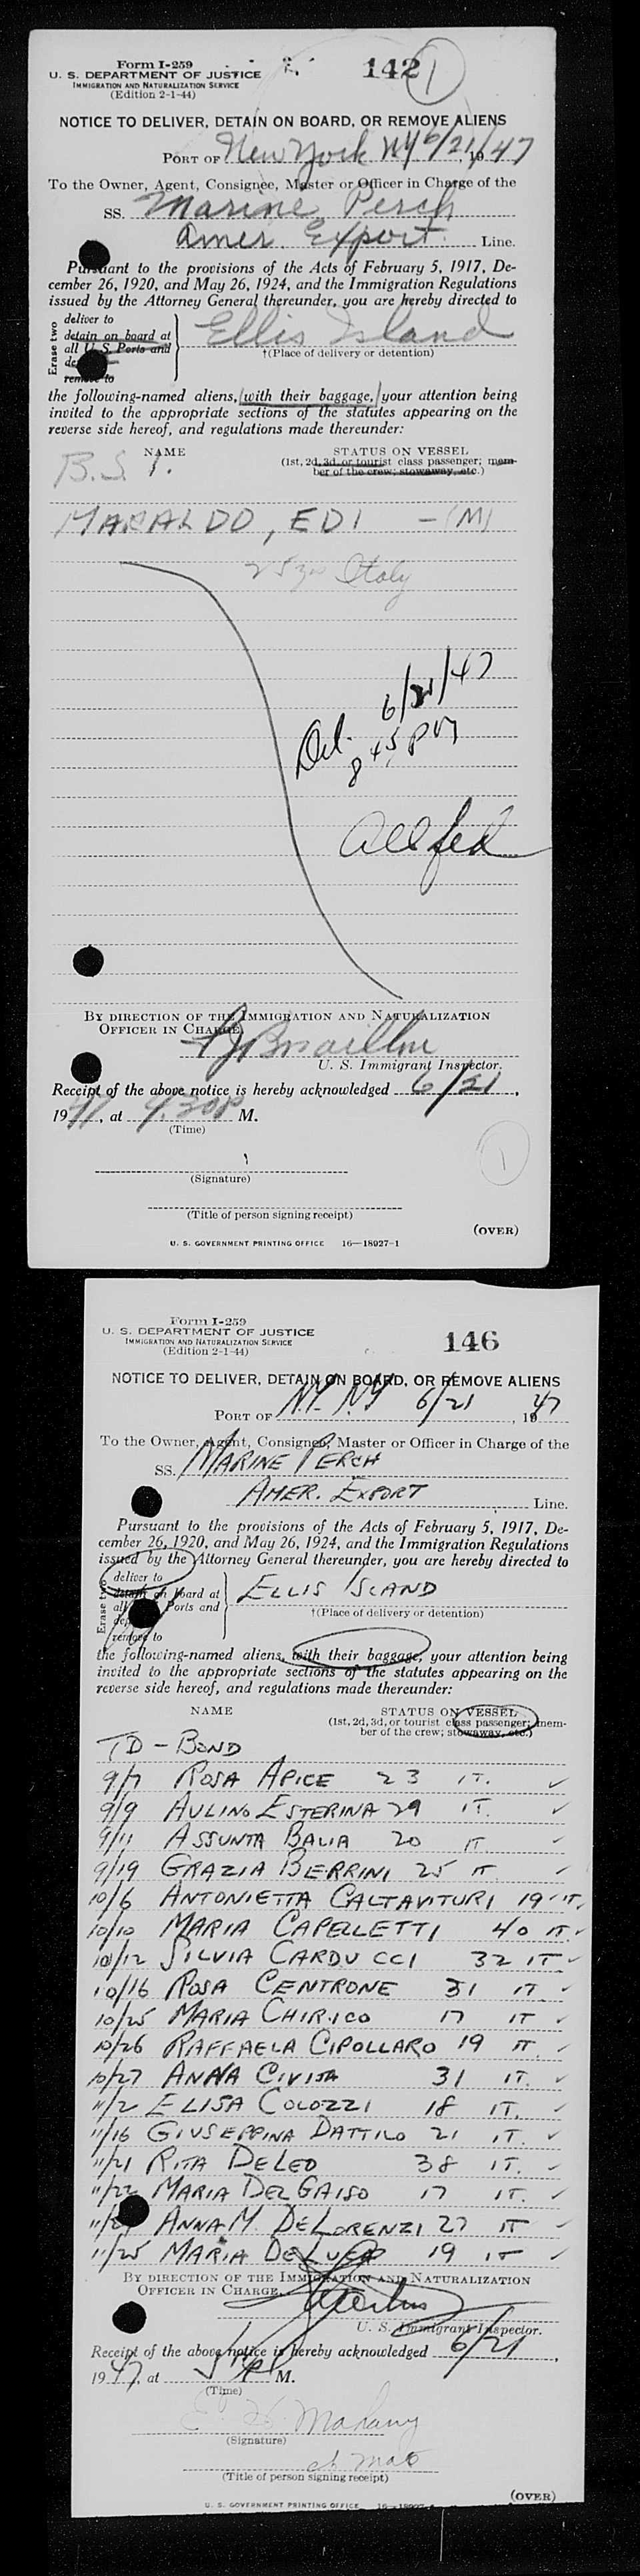 Form I-259
U. S. DEPARTMENT OF JUSTICE
IMMIGRATION AND NATURALIZATION SERVICE
(Edition 2-1-44)
142 1
NOTICE TO DELIVER, DETAIN ON BOARD, OR REMOVE ALIENS
PORT OF New York NY 6/21/, 1947
To the Owner, Agent, Consignee, Master or Officer in Charge of the
SS. Marine Perch
Amer. Export Line.
Pursuant to the provisions of the Acts of February 5, 1917, De-
cember 26, 1920, and May 26, 1924, and the Immigration Regulations
issued by the Attorney General thereunder, you are hereby directed to
Erase two
deliver to
detain on board at
all U.S. Ports and
remove to
Ellis Island
†(Place of delivery or detention)
the following-named aliens, with their baggage, your attention being
invited to the appropriate sections of the statutes appearing on the
reverse side hereof, and regulations made thereunder:
NAME STATUS ON VESSEL
(1st, 2d, 3d, or tourist class passenger; mem-
ber of the crew; stowaway, etc.)
B.S.I.
MARALDO, EDI - (M)
Italy
Del. 6/21/47
8 45 PM
All fed
BY DIRECTION OF THE IMMIGRATION AND NATURALIZATION
OFFICER IN CHARGE,
U. S. Immigrant Inspector.
Receipt of the above notice is hereby acknowledged 6/21,
1947, at 730P M.
(Time)
1
(Signature)
(Title of person signing receipt)
(OVER)
U. S. GOVERNMENT PRINTING OFFICE 16—18927-1
Form I-259
U. S. DEPARTMENT OF JUSTICE
IMMIGRATION AND NATURALIZATION SERVICE
(Edition 2-1-44)
146
NOTICE TO DELIVER, DETAIN ON BOARD, OR REMOVE ALIENS
PORT OF N.Y. N.Y 6/21, 1947
To the Owner, Agent, Consignee, Master or Officer in Charge of the
SS. MARINE PERCH
AMER. EXPORT Line.
Pursuant to the provisions of the Acts of February 5, 1917, De-
cember 26, 1920, and May 26, 1924, and the Immigration Regulations
issued by the Attorney General thereunder, you are hereby directed to
Erase two
deliver to
detain on board at
all Ports and
remove to
ELLIS ISLAND
†(Place of delivery or detention)
the following-named aliens, with their baggage, your attention being
invited to the appropriate sections of the statutes appearing on the
reverse side hereof, and regulations made thereunder:
NAME STATUS ON VESSEL
(1st, 2d, 3d, or tourist class passenger; mem-
ber of the crew; stowaway, etc.)
TD - BOND
9/7 ROSA APICE 23 IT. ✓
9/9 AULINO ESTERINA 29 IT. ✓
9/11 ASSUNTA BALIA 20 IT ✓
9/19 GRAZIA BERRINI 25 IT. ✓
10/6 ANTONIETTA CALTAVITURI 19 IT.
10/10 MARIA CAPELLETTI 40 IT. ✓
10/12 SILVIA CARDUCCI 32 IT ✓
10/16 ROSA CENTRONE 31 IT ✓
10/25 MARIA CHIRICO 17 IT ✓
10/26 RAFFAELA CIPOLLARO 19 IT. ✓
10/27 ANNA CIVITA 31 IT. ✓
11/2 ELISA COLOZZI 18 IT. ✓
11/16 GIUSEPPINA DATTILO 21 IT. ✓
11/21 RITA DELEO 38 IT. ✓
11/22 MARIA DEL GAISO 17 IT. ✓
ANNA M. DELORENZI 27 IT ✓
11/25 MARIA DELUCA 19 IT ✓
BY DIRECTION OF THE IMMIGRATION AND NATURALIZATION
OFFICER IN CHARGE,
U. S. Immigrant Inspector.
Receipt of the above notice is hereby acknowledged 6/21,
1947, at M.
(Time)
Mahany
(Signature)
(Title of person signing receipt)
(OVER)
U. S. GOVERNMENT PRINTING OFFICE